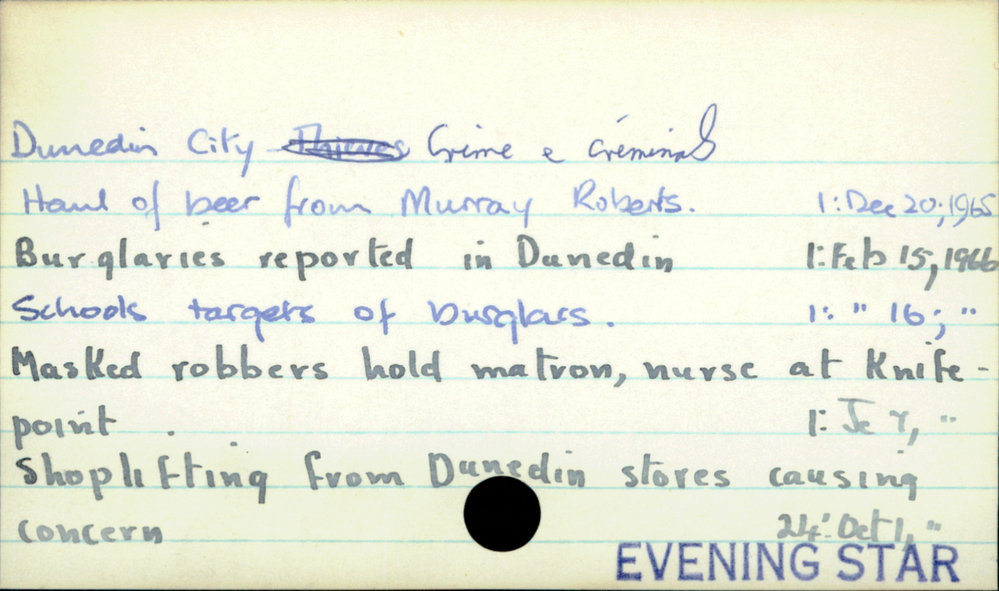 Dunedin City Thieves Crime & criminals
Haul of beer from Murray Roberts. 1: Dec 20; 1965
Burglaries reported in Dunedin 1: Feb 15, 1966
Schools targets of burglars. 1: " 16; "
Masked robbers hold matron, nurse at Knife-
point. 1: Je 7, "
Shoplifting from Dunedin stores causing
concern 24: Oct 1, "
EVENING STAR